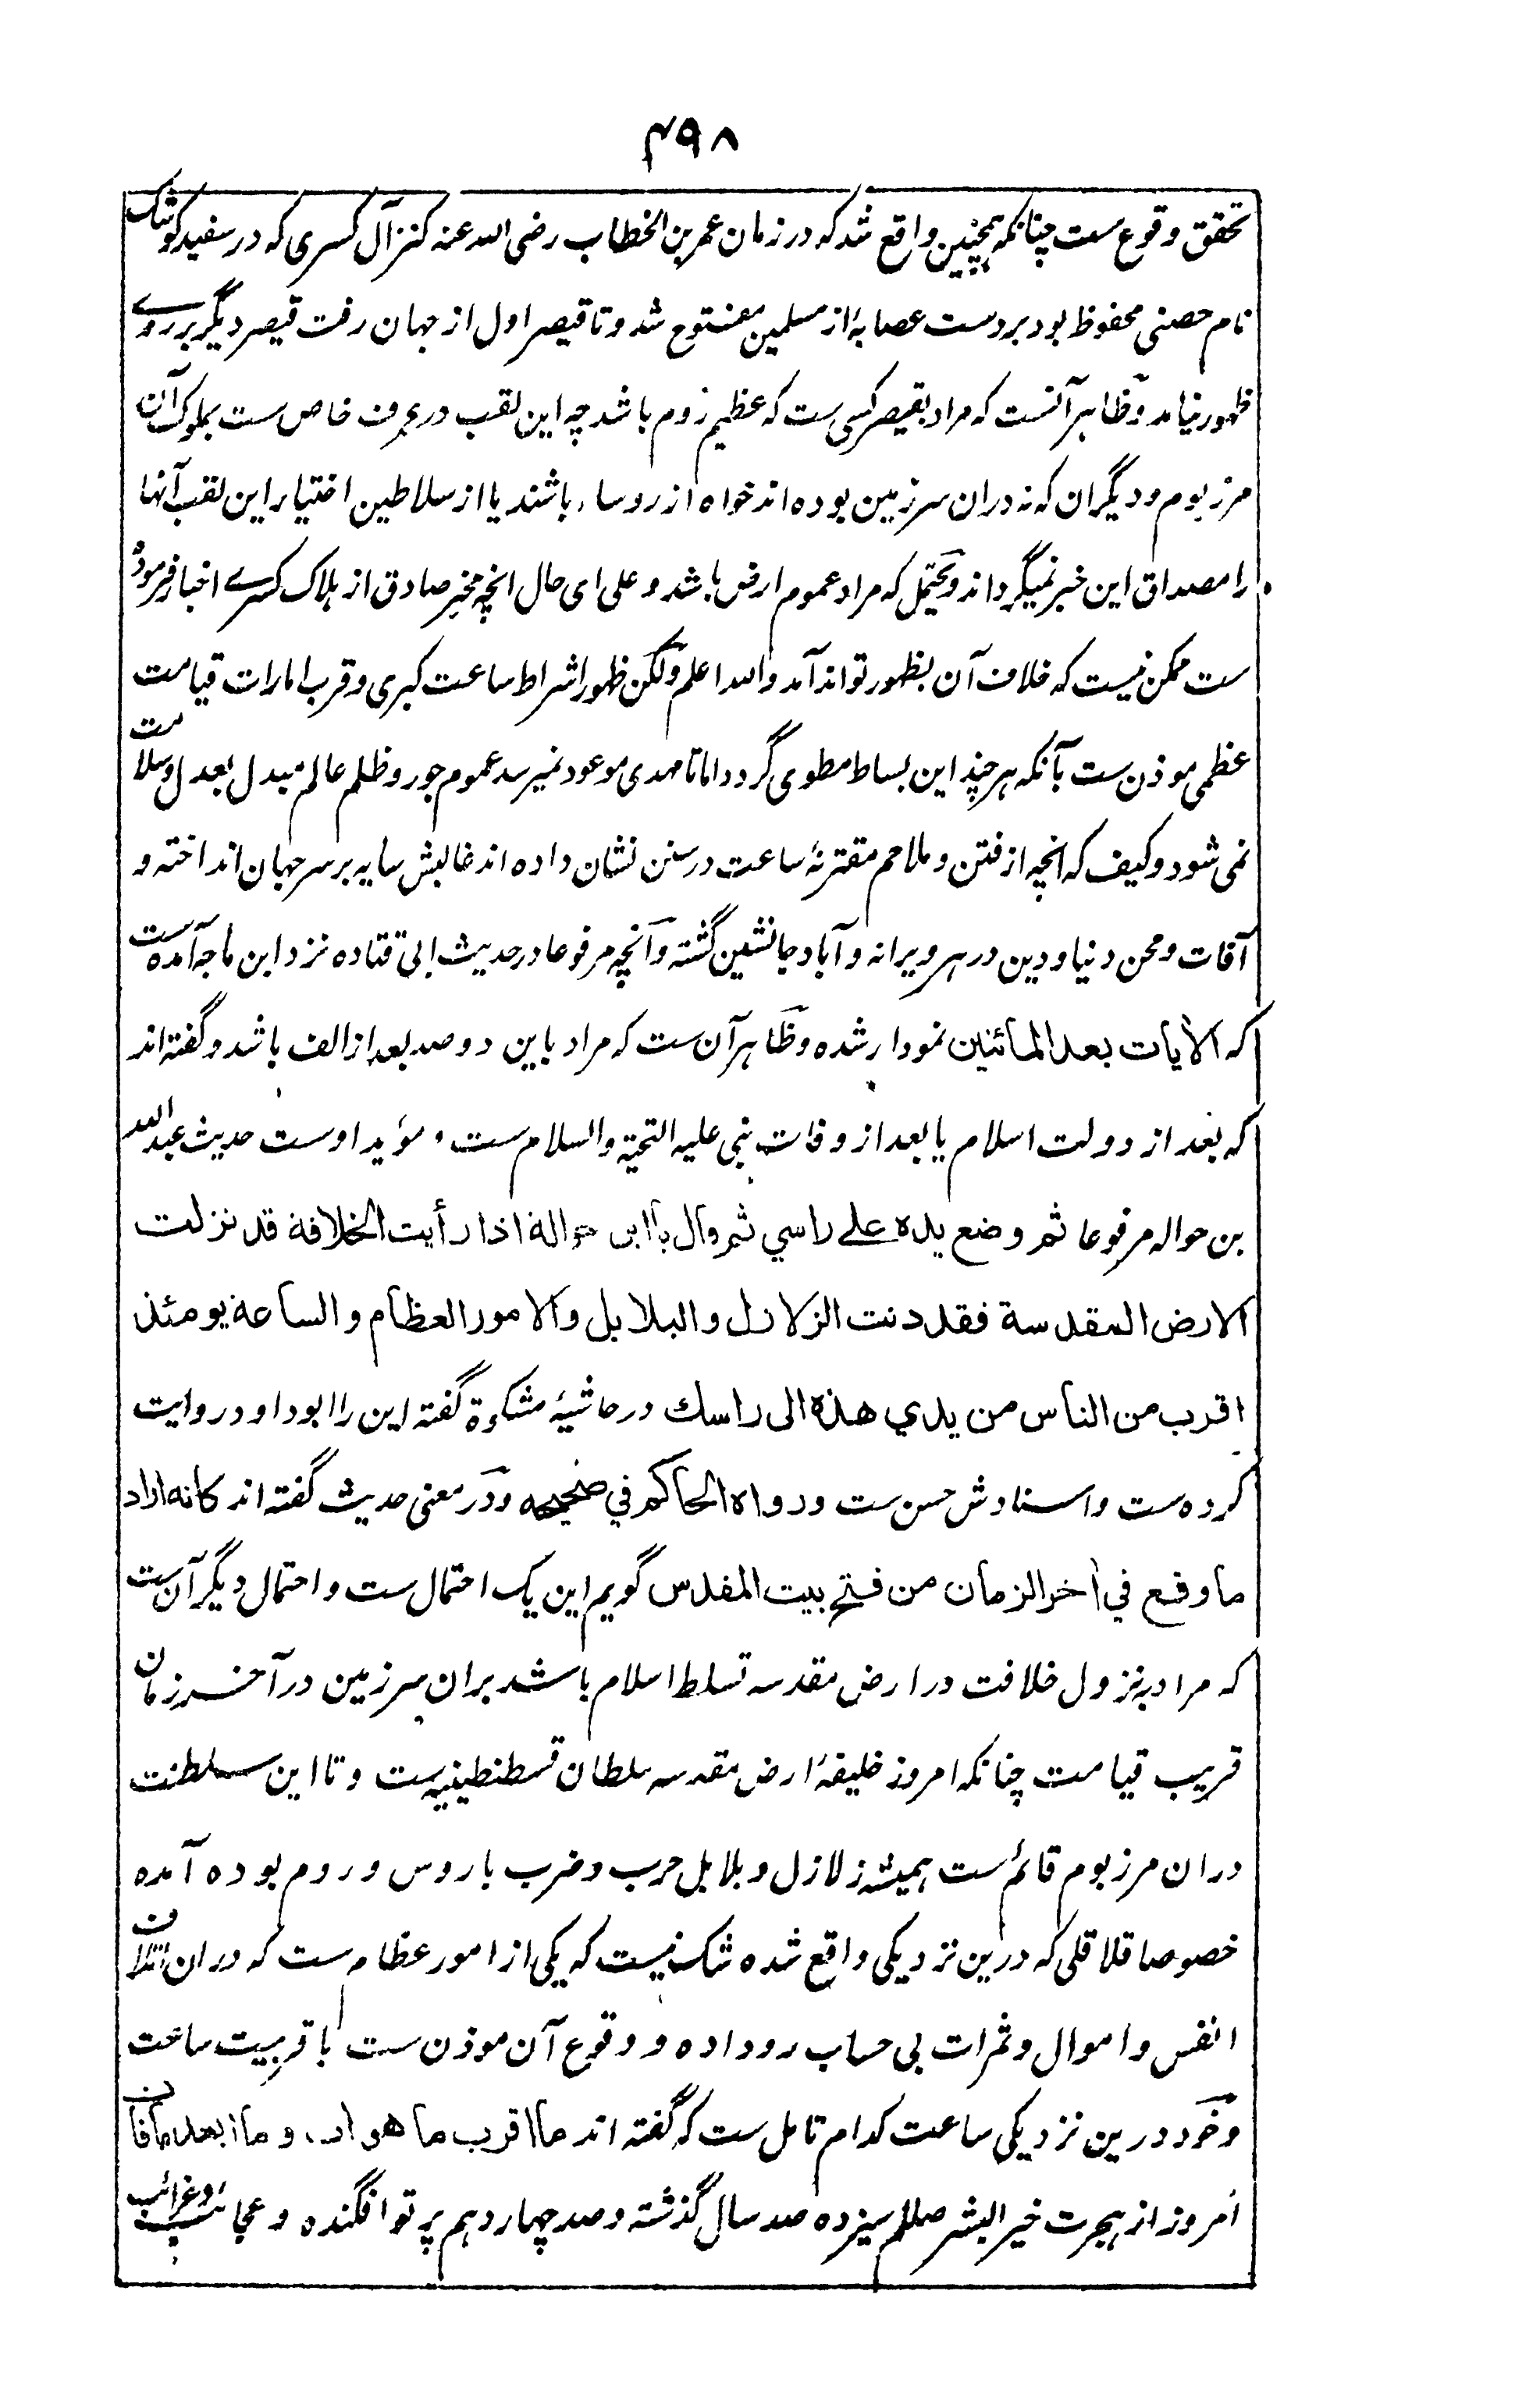 ۴۹۸
تحقق وقوع ست چنانکه همچنین واقع شد که در زمان عمر بن الخطاب رضی الله عنه کنز آل کسری که در سفید کوشک
نام حصنی محفوظ بود بر دست عصابهٔ از مسلمین مفتوح شد و تا قیصر اول از جهان رفت قیصر دیگر بر روے
ظهور نیامد و ظاهر آنست که مراد بقیصر کسی ست که عظیم روم باشد چه این لقب در عرف خاص ست بملوک آن
مرز بوم و دیگران که نه دران سرزمین بوده اند خواه از روساء باشند یا از سلاطین اختیار این لقب آنها
را مصداق این خبر نمیگرداند و یحتمل که مراد عموم ارض باشد و علی ای حال انچه مخبر صادق از هلاک کسرے اخبار فرموده
ست ممکن نیست که خلاف آن بظهور تواند آمد والله اعلم و لکن ظهور اشراط ساعت کبری و قرب امارات قیامت
عظمی موذن ست بآنکه هر چند این بساط مطوی گردد اما تا مهدی موعود نمیرسد عموم جور و ظلم عالم مبدل بعدل و سلامت
نمی شود و کیف که انچه از فتن و ملاحم مقترنهٔ ساعت در سنن نشان داده اند غالبش سایه بر سر جهان انداخته و
آفات و محن دنیا و دین در هر ویرانه و آباد جانشین گشته و آنچه مرفوعا در حدیث ابی قتاده نزد ابن ماجه آمده ست
که الآیات بعد المائتین نمودار شده و ظاهر آن ست که مراد باین دو صد بعد از الف باشد و گفته اند
که بعد از دولت اسلام یا بعد از وفات نبی علیه التحیة والسلام ست و مؤید اوست حدیث عبد الله
بن حواله مرفوعا ثم وضع یده علے راسي ثم قال یا ابن حوالة اذا رأیت الخلافة قد نزلت
الارض المقدسة فقد دنت الزلازل والبلابل والامور العظام والساعة یومئذ
اقرب من الناس من یدي هذه الی راسك در حاشیهٔ مشکوة گفته این را ابو داود روایت
کرده ست و اسنادش حسن ست ورواه الحاکم في صحیحه و در معنی حدیث گفته اند کانه اراد
ما وقع في اخر الزمان من فتح بیت المقدس گویم این یک احتمال ست و احتمال دیگر آن ست
که مراد بنزول خلافت در ارض مقدسه تسلط اسلام باشد بران سرزمین در آخر زمان
قریب قیامت چنانکه امروز خلیفهٔ ارض مقدسه سلطان قسطنطینیه ست و تا این سلطنت
دران مرز بوم قائم ست همیشه زلازل و بلابل حرب و ضرب با روس و روم بوده آمده
خصوصا قلاقلی که درین نزدیکی واقع شده شک نیست که یکی از امور عظام ست که دران اتلاف
انفس و اموال و ثمرات بی حساب رو داده و وقوع آن موذن ست با قربیت ساعت
و خود درین نزدیکی ساعت کدام تامل ست که گفته اند ما اقرب ما هو ات وما ابعد ما فات
امروز از هجرت خیر البشر صللم سیزده صد سال گذشته و صد چهاردهم پرتو افگنده و عجائب و غرائب